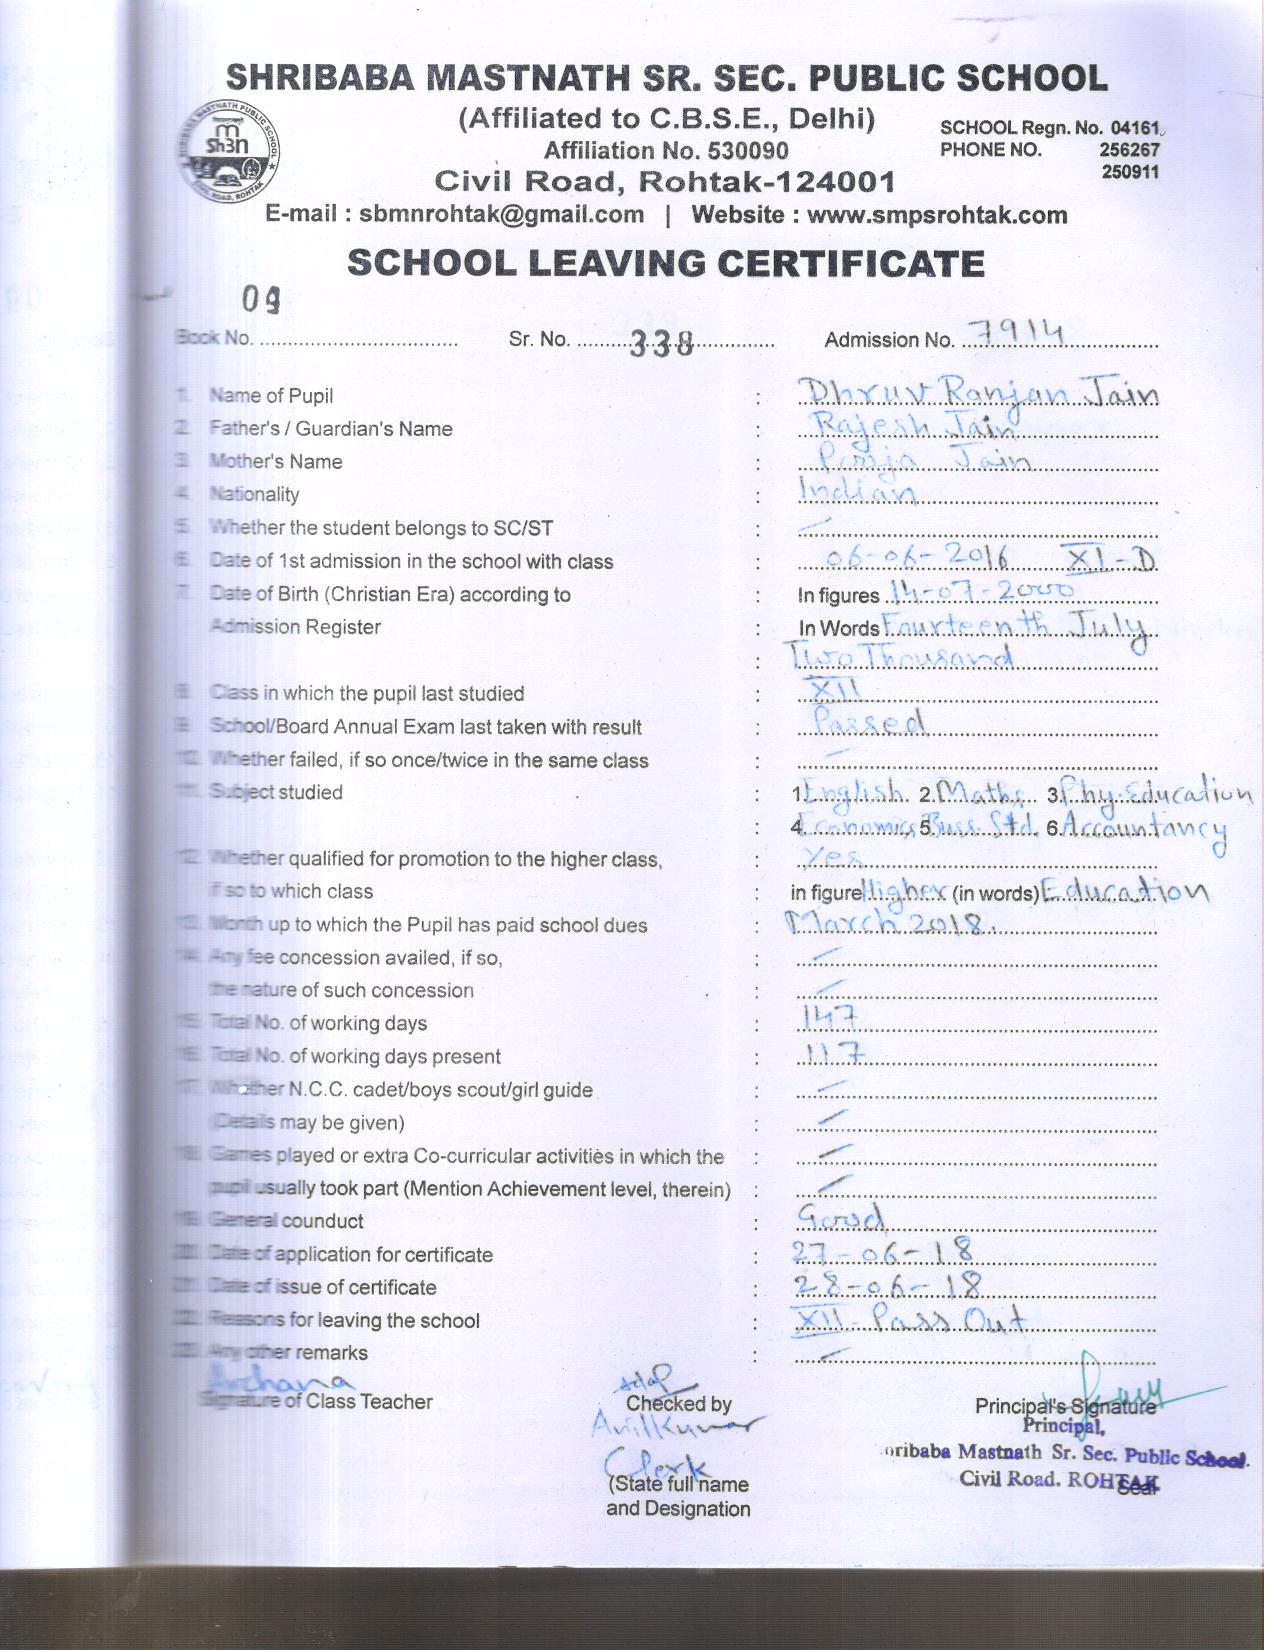 SHRIBABA MASTNATH SR. SEC. PUBLIC SCHOOL
(Affiliated to C.B.S.E., Delhi)
Affiliation No. 530090
SCHOOL Regn. No. 04161
PHONE NO. 256267
250911
Civil Road, Rohtak-124001
E-mail : sbmnrohtak@gmail.com | Website : www.smpsrohtak.com
SCHOOL LEAVING CERTIFICATE
Book No. 09 Sr. No. 338 Admission No. 7914
1. Name of Pupil : Dhruv Ranjan Jain
2. Father's / Guardian's Name : Rajesh Jain
3. Mother's Name : Pooja Jain
4. Nationality : Indian
5. Whether the student belongs to SC/ST : -
6. Date of 1st admission in the school with class : 06-06-2016 XI-D
7. Date of Birth (Christian Era) according to : In figures 14-07-2000
Admission Register : In Words Fourteenth July
: Two Thousand
8. Class in which the pupil last studied : XII
9. School/Board Annual Exam last taken with result : Passed
10. Whether failed, if so once/twice in the same class : -
11. Subject studied : 1 English 2. Maths 3. Phy. Education
: 4. Economics 5. Buss. Std. 6. Accountancy
12. Whether qualified for promotion to the higher class, : Yes
if so to which class : in figure Higher (in words) Education
13. Month up to which the Pupil has paid school dues : March 2018.
14. Any fee concession availed, if so, : -
the nature of such concession : -
15. Total No. of working days : 147
16. Total No. of working days present : 117
17. Whether N.C.C. cadet/boys scout/girl guide : -
(Details may be given) : -
18. Games played or extra Co-curricular activities in which the : -
pupil usually took part (Mention Achievement level, therein) : -
19. General counduct : Good
20. Date of application for certificate : 27-06-18
21. Date of issue of certificate : 28-06-18
22. Reasons for leaving the school : XII- Pass Out
23. Any other remarks : -
Archana
Signature of Class Teacher
Checked by
Anil Kumar
Clerk
(State full name
and Designation
Principal's Signature
Principal,
Shribaba Mastnath Sr. Sec. Public School.
Civil Road. ROHTAK
Seal